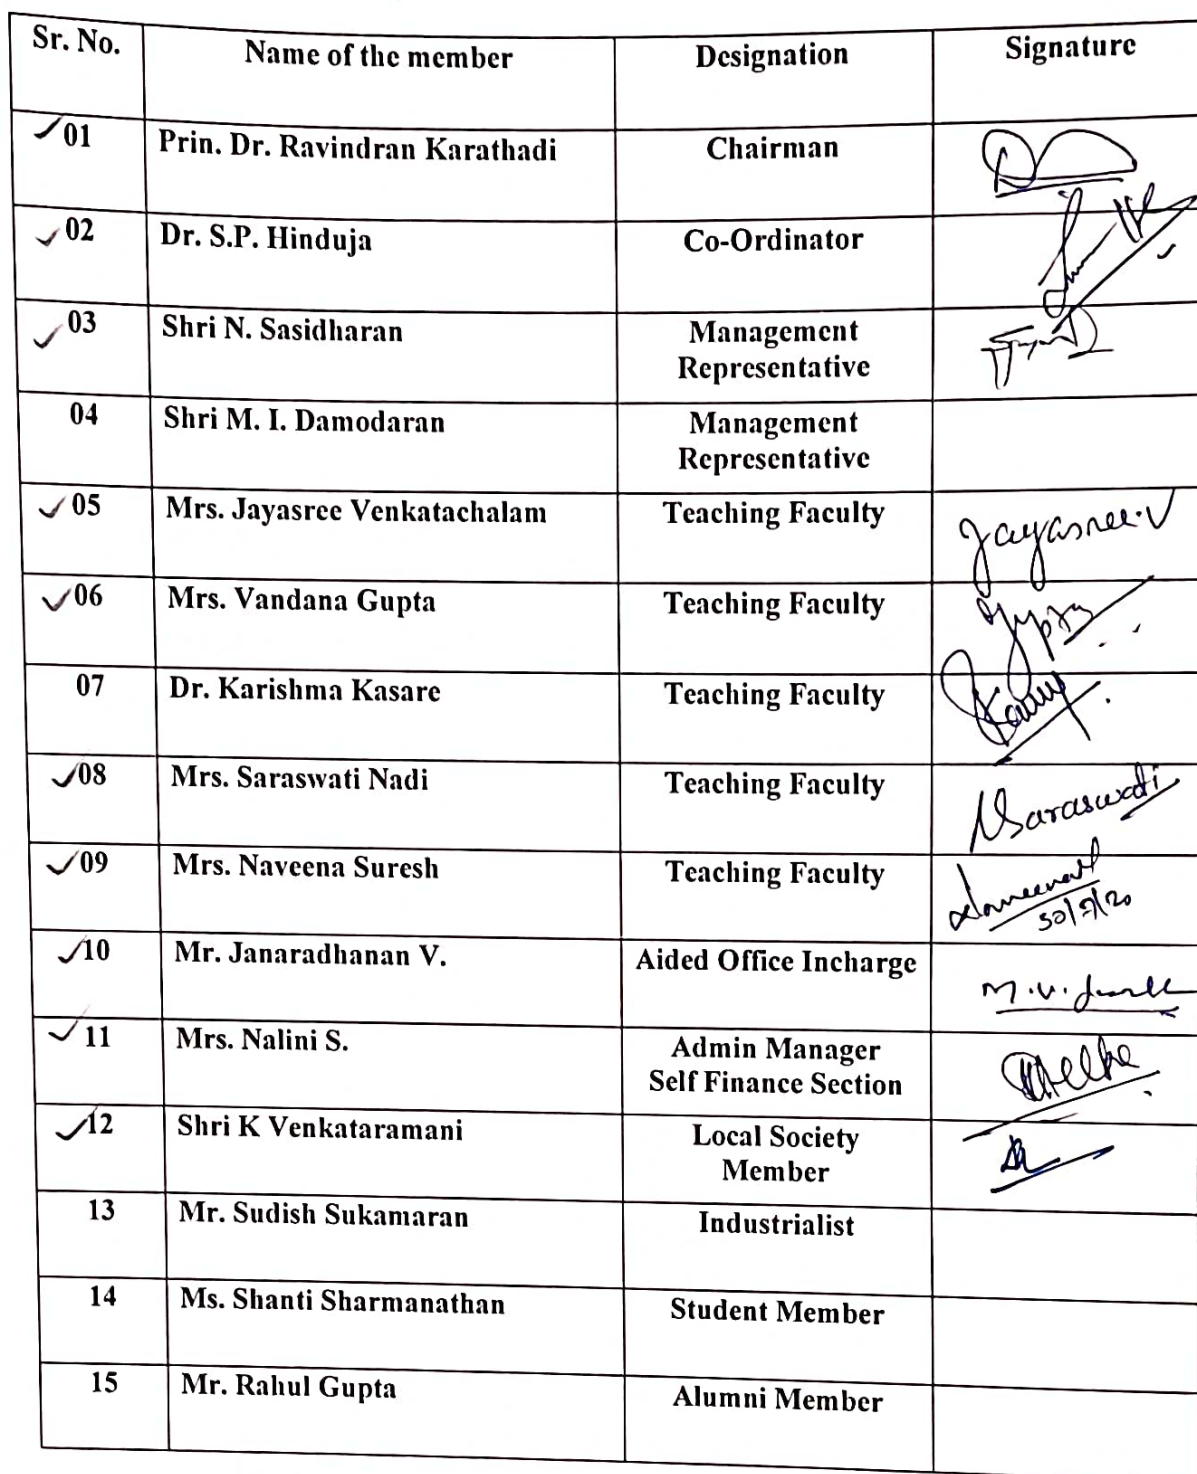 Sr. No. Name of the member Designation Signature
✓01 Prin. Dr. Ravindran Karathadi Chairman
✓02 Dr. S.P. Hinduja Co-Ordinator
✓03 Shri N. Sasidharan Management
Representative
04 Shri M. I. Damodaran Management
Representative
✓05 Mrs. Jayasree Venkatachalam Teaching Faculty Jayasree.V
✓06 Mrs. Vandana Gupta Teaching Faculty Gupta
07 Dr. Karishma Kasare Teaching Faculty
✓08 Mrs. Saraswati Nadi Teaching Faculty NSaraswati
✓09 Mrs. Naveena Suresh Teaching Faculty
30/7/20
✓10 Mr. Janaradhanan V. Aided Office Incharge M.V.
✓11 Mrs. Nalini S. Admin Manager
Self Finance Section
✓12 Shri K Venkataramani Local Society
Member
13 Mr. Sudish Sukamaran Industrialist
14 Ms. Shanti Sharmanathan Student Member
15 Mr. Rahul Gupta Alumni Member